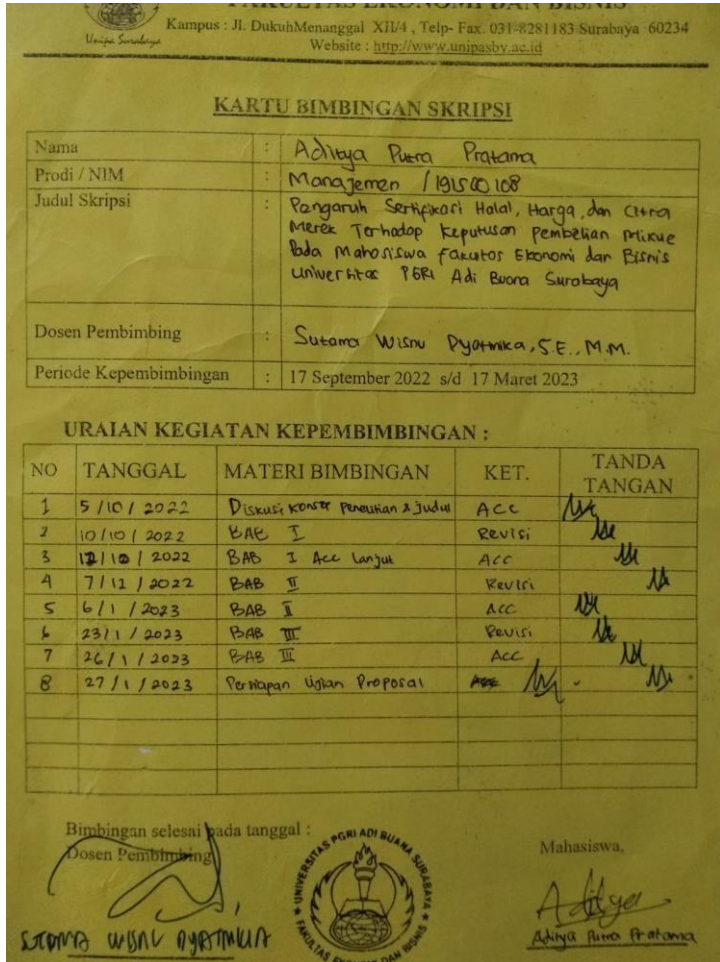 FAKULTAS EKONOMI DAN BISNIS
Kampus : Jl. DukuhMenanggal XII/4 , Telp- Fax. 031-8281183 Surabaya 60234
Unipa Surabaya
Website : http://www.unipasby.ac.id
KARTU BIMBINGAN SKRIPSI
Nama : Aditya Putra Pratama
Prodi / NIM : Manajemen / 191500108
Judul Skripsi : Pengaruh Sertifikasi Halal, Harga, dan Citra
Merek Terhadap Keputusan Pembelian Mixue
Pada Mahasiswa Fakultas Ekonomi dan Bisnis
Universitas PGRI Adi Buana Surabaya
Dosen Pembimbing : Sutama Wisnu Dyatmika, S.E., M.M.
Periode Kepembimbingan : 17 September 2022 s/d 17 Maret 2023
URAIAN KEGIATAN KEPEMBIMBINGAN :
NO TANGGAL MATERI BIMBINGAN KET. TANDA TANGAN
1 5/10/2022 Diskusi konsep Penelitian & Judul ACC
2 10/10/2022 BAB I Revisi
3 12/10/2022 BAB I Acc Lanjut Acc
4 7/12/2022 BAB II Revisi
5 6/1/2023 BAB II Acc
6 23/1/2023 BAB III Revisi
7 26/1/2023 BAB III Acc
8 27/1/2023 Persiapan Ujian Proposal
Bimbingan selesai pada tanggal :
Dosen Pembimbing Mahasiswa,
UNIVERSITAS PGRI ADI BUANA SURABAYA
FAKULTAS EKONOMI DAN BISNIS
Aditya
SUTAMA WISNU DYATMIKA Aditya Putra Pratama